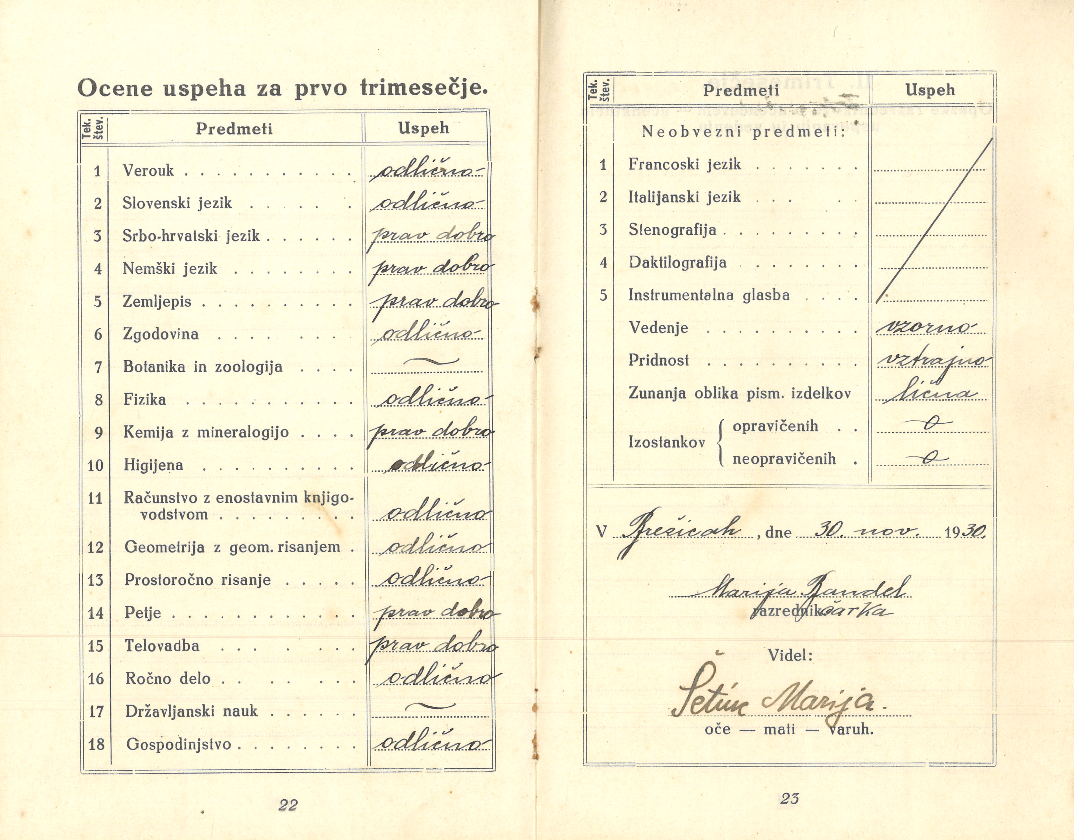 Ocene uspeha za prvo trimesečje.
Tek. štev. Predmeti Uspeh
1 Verouk odlično
2 Slovenski jezik odlično
3 Srbo-hrvatski jezik prav dobro
4 Nemški jezik prav dobro
5 Zemljepis prav dobro
6 Zgodovina odlično
7 Botanika in zoologija —
8 Fizika odlično
9 Kemija z mineralogijo prav dobro
10 Higijena odlično
11 Računstvo z enostavnim knjigo-
vodstvom odlično
12 Geometrija z geom. risanjem odlično
13 Prostoročno risanje odlično
14 Petje prav dobro
15 Telovadba prav dobro
16 Ročno delo odlično
17 Državljanski nauk —
18 Gospodinjstvo odlično
22
Tek. štev. Predmeti Uspeh
Neobvezni predmeti:
1 Francoski jezik
2 Italijanski jezik
3 Stenografija
4 Daktilografija
5 Instrumentalna glasba
Vedenje vzorno
Pridnost vztrajno
Zunanja oblika pism. izdelkov lična
Izostankov { opravičenih o
neopravičenih o
V Brežicah, dne 30. nov. 1930.
Marija Bandel
razredničarka
Videl:
Marija.
oče — mati — varuh.
23